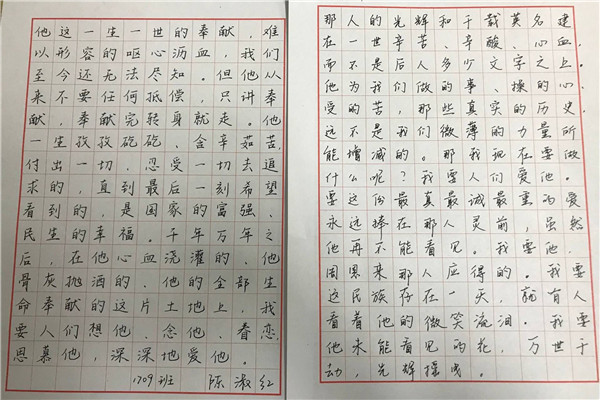 他这一生一世的奉献，难
以形容的呕心沥血，我们
至今还无法尽知。但他从
来不要任何抵偿，只讲奉
献，奉献完转身就走。他
一生孜孜矻矻、含辛茹苦，
付出一切，忍受一切去追
求的，直到最后一刻希望
看到的，是国家的富强、
民生的幸福。千年万年之
后，在他心血浇灌的、他
骨灰抛洒的、他的全部生
命奉献的这片土地上，我
要人们想他、念他、看恋、
思慕他，深深地爱他。
1709班 陈淑红
那人的光辉和千载英名建
在一世辛苦、辛酸、心血，
而不是后人多少文字之上。
他为我们做的事、操的心、
受的苦，那些真实的历史，
远不是我们微薄的力量所
能增减的。那我现在要做
什么呢？我要人们爱他。
要这份最真最诚最重的爱
永远捧在那人灵前，虽然
他再不能看见。我要他，
周恩来那人应得的。我要
这民族存在一天，就有人
看着他的微笑流泪。我要
他未能看见的花，万世千
动，光辉摇曳。